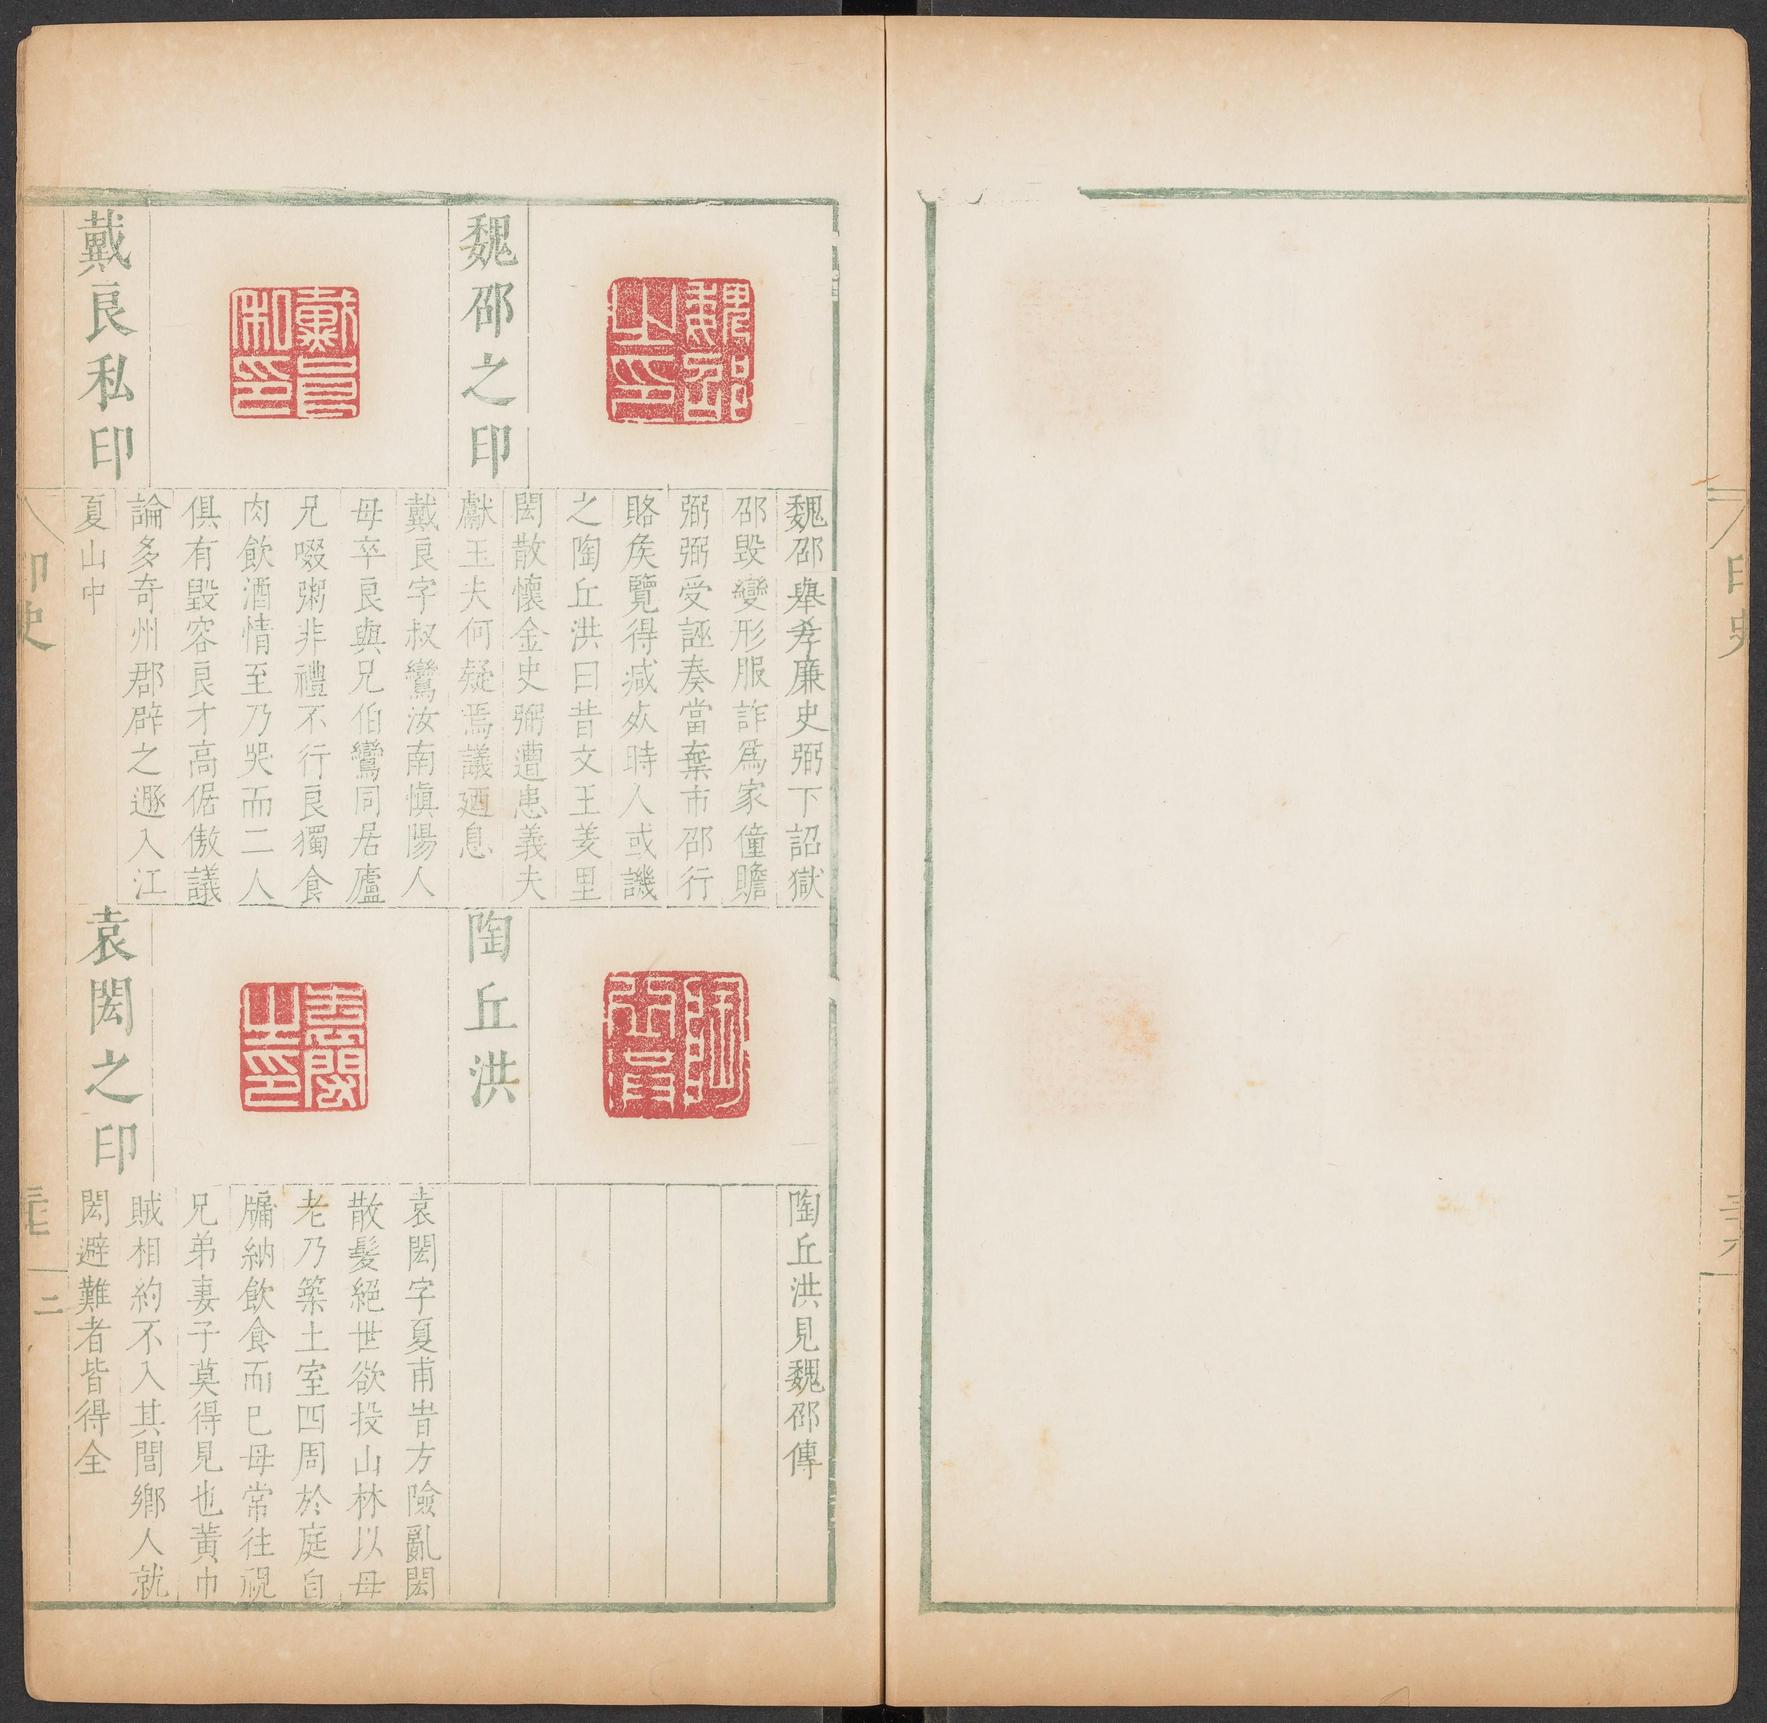 印史
魏邵之印
魏邵舉孝廉史弼下詔獄
邵毀變形服詐爲家僮贍
弼弼受誣奏當棄市邵行
賂矦覽得減死時人或譏
之陶丘洪曰昔文王羑里
閎散懷金史弼遭患義夫
獻玉夫何疑焉議廼息
戴良私印
戴良字叔鸞汝南愼陽人
母卒良與兄伯鸞同居廬
兄啜粥非禮不行良獨食
肉飲酒情至乃哭而二人
俱有毀容良才高倨傲議
論多奇州郡辟之遯入江
夏山中
陶丘洪
陶丘洪見魏邵傳
袁閎之印
袁閎字夏甫旹方險亂閎
散髮絕世欲投山林以母
老乃築土室四周於庭自
牖納飲食而已母常往視
兄弟妻子莫得見也黃巾
賊相約不入其閭鄉人就
閎避難者皆得全
印史